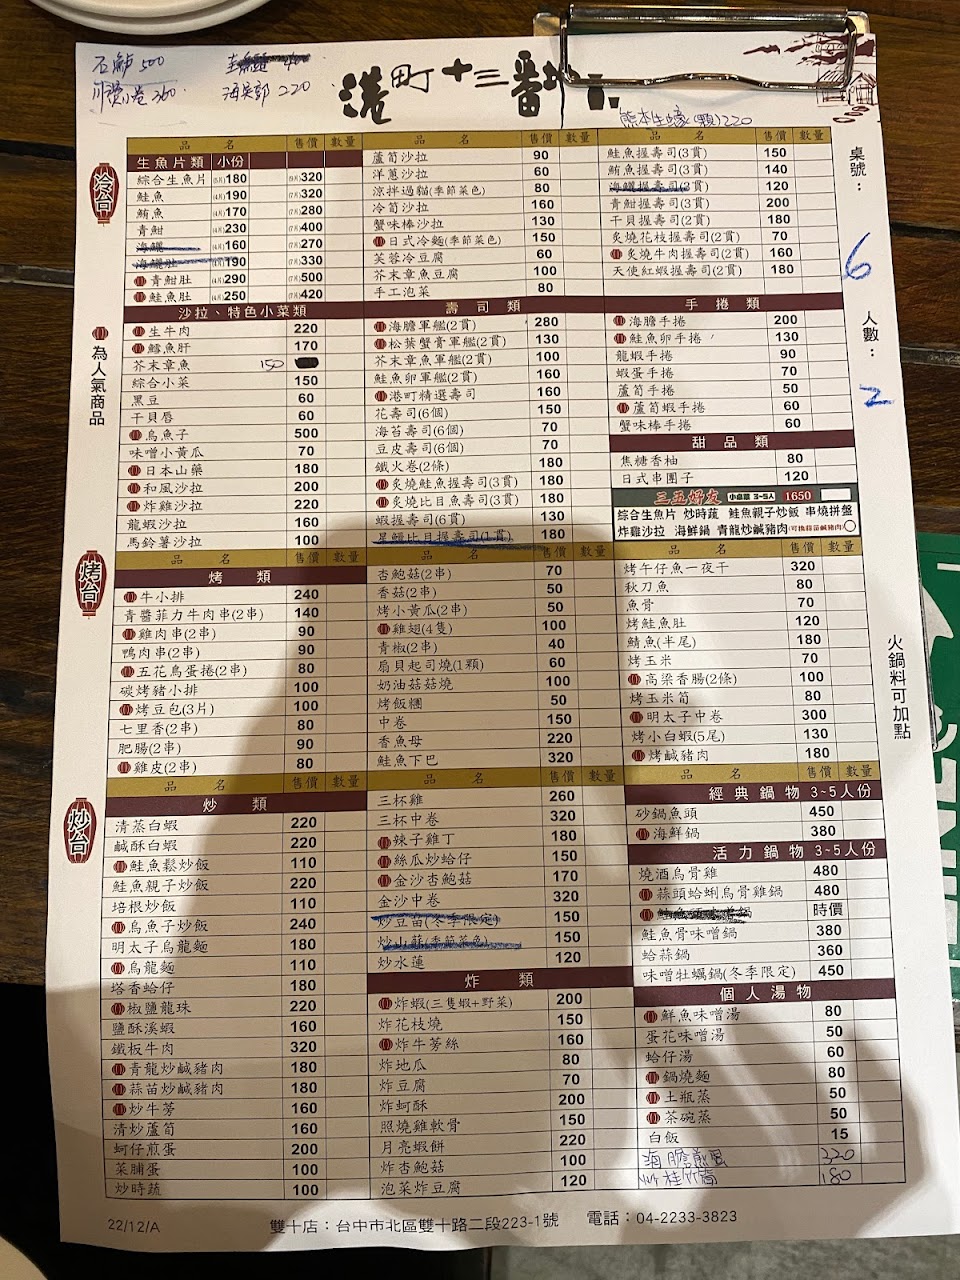 石鱸 500
川燙小卷 360
海吳郭 220
港町十三番地
熊本生蠔(顆)220
桌號：
6
人數：
2
冷台
為人氣商品
品名 售價 數量
生魚片類 小份
綜合生魚片 (5片)180 (9片)320
鮭魚 (4片)190 (7片)320
鮪魚 (4片)170 (7片)280
青魽 (4片)230 (7片)400
海鱺 (4片)160 (7片)270
海鱺肚 (4片)190 (7片)330
青魽肚 (4片)290 (7片)500
鮭魚肚 (4片)250 (7片)420
沙拉、特色小菜類
生牛肉 220
鱈魚肝 170
芥末章魚 150
綜合小菜 150
黑豆 60
干貝唇 60
烏魚子 500
味噌小黃瓜 70
日本山藥 180
和風沙拉 200
炸雞沙拉 220
龍蝦沙拉 160
馬鈴薯沙拉 100
品名 售價 數量
蘆筍沙拉 90
洋蔥沙拉 60
涼拌過貓(季節菜色) 80
冷筍沙拉 160
蟹味棒沙拉 130
日式冷麵(季節菜色) 150
芙蓉冷豆腐 60
芥末章魚豆腐 100
手工泡菜 80
壽司類
海膽軍艦(2貫) 280
松葉蟹膏軍艦(2貫) 130
芥末章魚軍艦(2貫) 100
鮭魚卵軍艦(2貫) 160
港町精選壽司 160
花壽司(6個) 150
海苔壽司(6個) 70
豆皮壽司(6個) 70
鐵火卷(2條) 180
炙燒鮭魚握壽司(3貫) 180
炙燒比目魚壽司(3貫) 180
蝦握壽司(6貫) 130
星鰻比目握壽司(1貫) 180
品名 售價 數量
鮭魚握壽司(3貫) 150
鮪魚握壽司(3貫) 140
海鱺握壽司(3貫) 120
青魽握壽司(3貫) 200
干貝握壽司(2貫) 180
炙燒花枝握壽司(2貫) 70
炙燒牛肉握壽司(2貫) 160
天使紅蝦握壽司(2貫) 180
手捲類
海膽手捲 200
鮭魚卵手捲 130
龍蝦手捲 90
蝦蛋手捲 70
蘆筍手捲 50
蘆筍蝦手捲 60
蟹味棒手捲 60
甜品類
焦糖香柚 80
日式串團子 120
三五好友 小桌菜 3-5人 1650
綜合生魚片 炒時蔬 鮭魚親子炒飯 串燒拼盤
炸雞沙拉 海鮮鍋 青龍炒鹹豬肉(可換蒜苗鹹豬肉)
烤台
火鍋料可加點
品名 售價 數量
烤類
牛小排 240
青醬菲力牛肉串(2串) 140
雞肉串(2串) 90
鴨肉串(2串) 90
五花鳥蛋捲(2串) 80
碳烤豬小排 100
烤豆包(3片) 100
七里香(2串) 80
肥腸(2串) 90
雞皮(2串) 80
品名 售價 數量
杏鮑菇(2串) 70
香菇(2串) 50
烤小黃瓜(2串) 50
雞翅(4隻) 100
青椒(2串) 40
扇貝起司燒(1顆) 60
奶油菇菇燒 100
烤飯糰 50
中卷 150
香魚母 220
鮭魚下巴 320
品名 售價 數量
烤午仔魚一夜干 320
秋刀魚 80
魚骨 70
烤鮭魚肚 120
鯖魚(半尾) 180
烤玉米 70
高梁香腸(2條) 100
烤玉米筍 80
明太子中卷 300
烤小白蝦(5尾) 130
烤鹹豬肉 180
炒台
品名 售價 數量
炒類
清蒸白蝦 220
鹹酥白蝦 220
鮭魚鬆炒飯 110
鮭魚親子炒飯 220
培根炒飯 110
烏魚子炒飯 240
明太子烏龍麵 180
烏龍麵 110
塔香蛤仔 180
椒鹽龍珠 220
鹽酥溪蝦 160
鐵板牛肉 320
青龍炒鹹豬肉 180
蒜苗炒鹹豬肉 180
炒牛蒡 160
清炒蘆筍 160
蚵仔煎蛋 200
菜脯蛋 100
炒時蔬 100
品名 售價 數量
三杯雞 260
三杯中卷 320
辣子雞丁 180
絲瓜炒蛤仔 150
金沙杏鮑菇 170
金沙中卷 320
炒豆苗(冬季限定) 150
炒山蘇(季節菜色) 150
炒水蓮 120
炸類
炸蝦(三隻蝦+野菜) 200
炸花枝燒 150
炸牛蒡絲 160
炸地瓜 80
炸豆腐 70
炸蚵酥 200
照燒雞軟骨 150
月亮蝦餅 220
炸杏鮑菇 100
泡菜炸豆腐 120
品名 售價 數量
經典鍋物 3~5人份
砂鍋魚頭 450
海鮮鍋 380
活力鍋物 3~5人份
燒酒烏骨雞 480
蒜頭蛤蜊烏骨雞鍋 480
時價
鮭魚骨味噌鍋 380
蛤蒜鍋 360
味噌牡蠣鍋(冬季限定) 450
個人湯物
鮮魚味噌湯 80
蛋花味噌湯 50
蛤仔湯 60
鍋燒麵 80
土瓶蒸 50
茶碗蒸 50
白飯 15
海膽煎蛋 220
炒桂竹筍 180
22/12/A
雙十店：台中市北區雙十路二段223-1號 電話：04-2233-3823